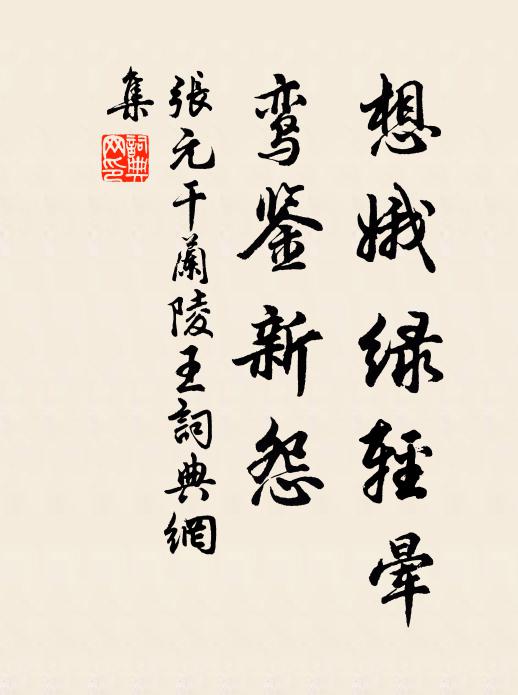 想娥绿轻晕
鸾鉴新怨
張元干蘭陵王詞典網
集
詞典
网印